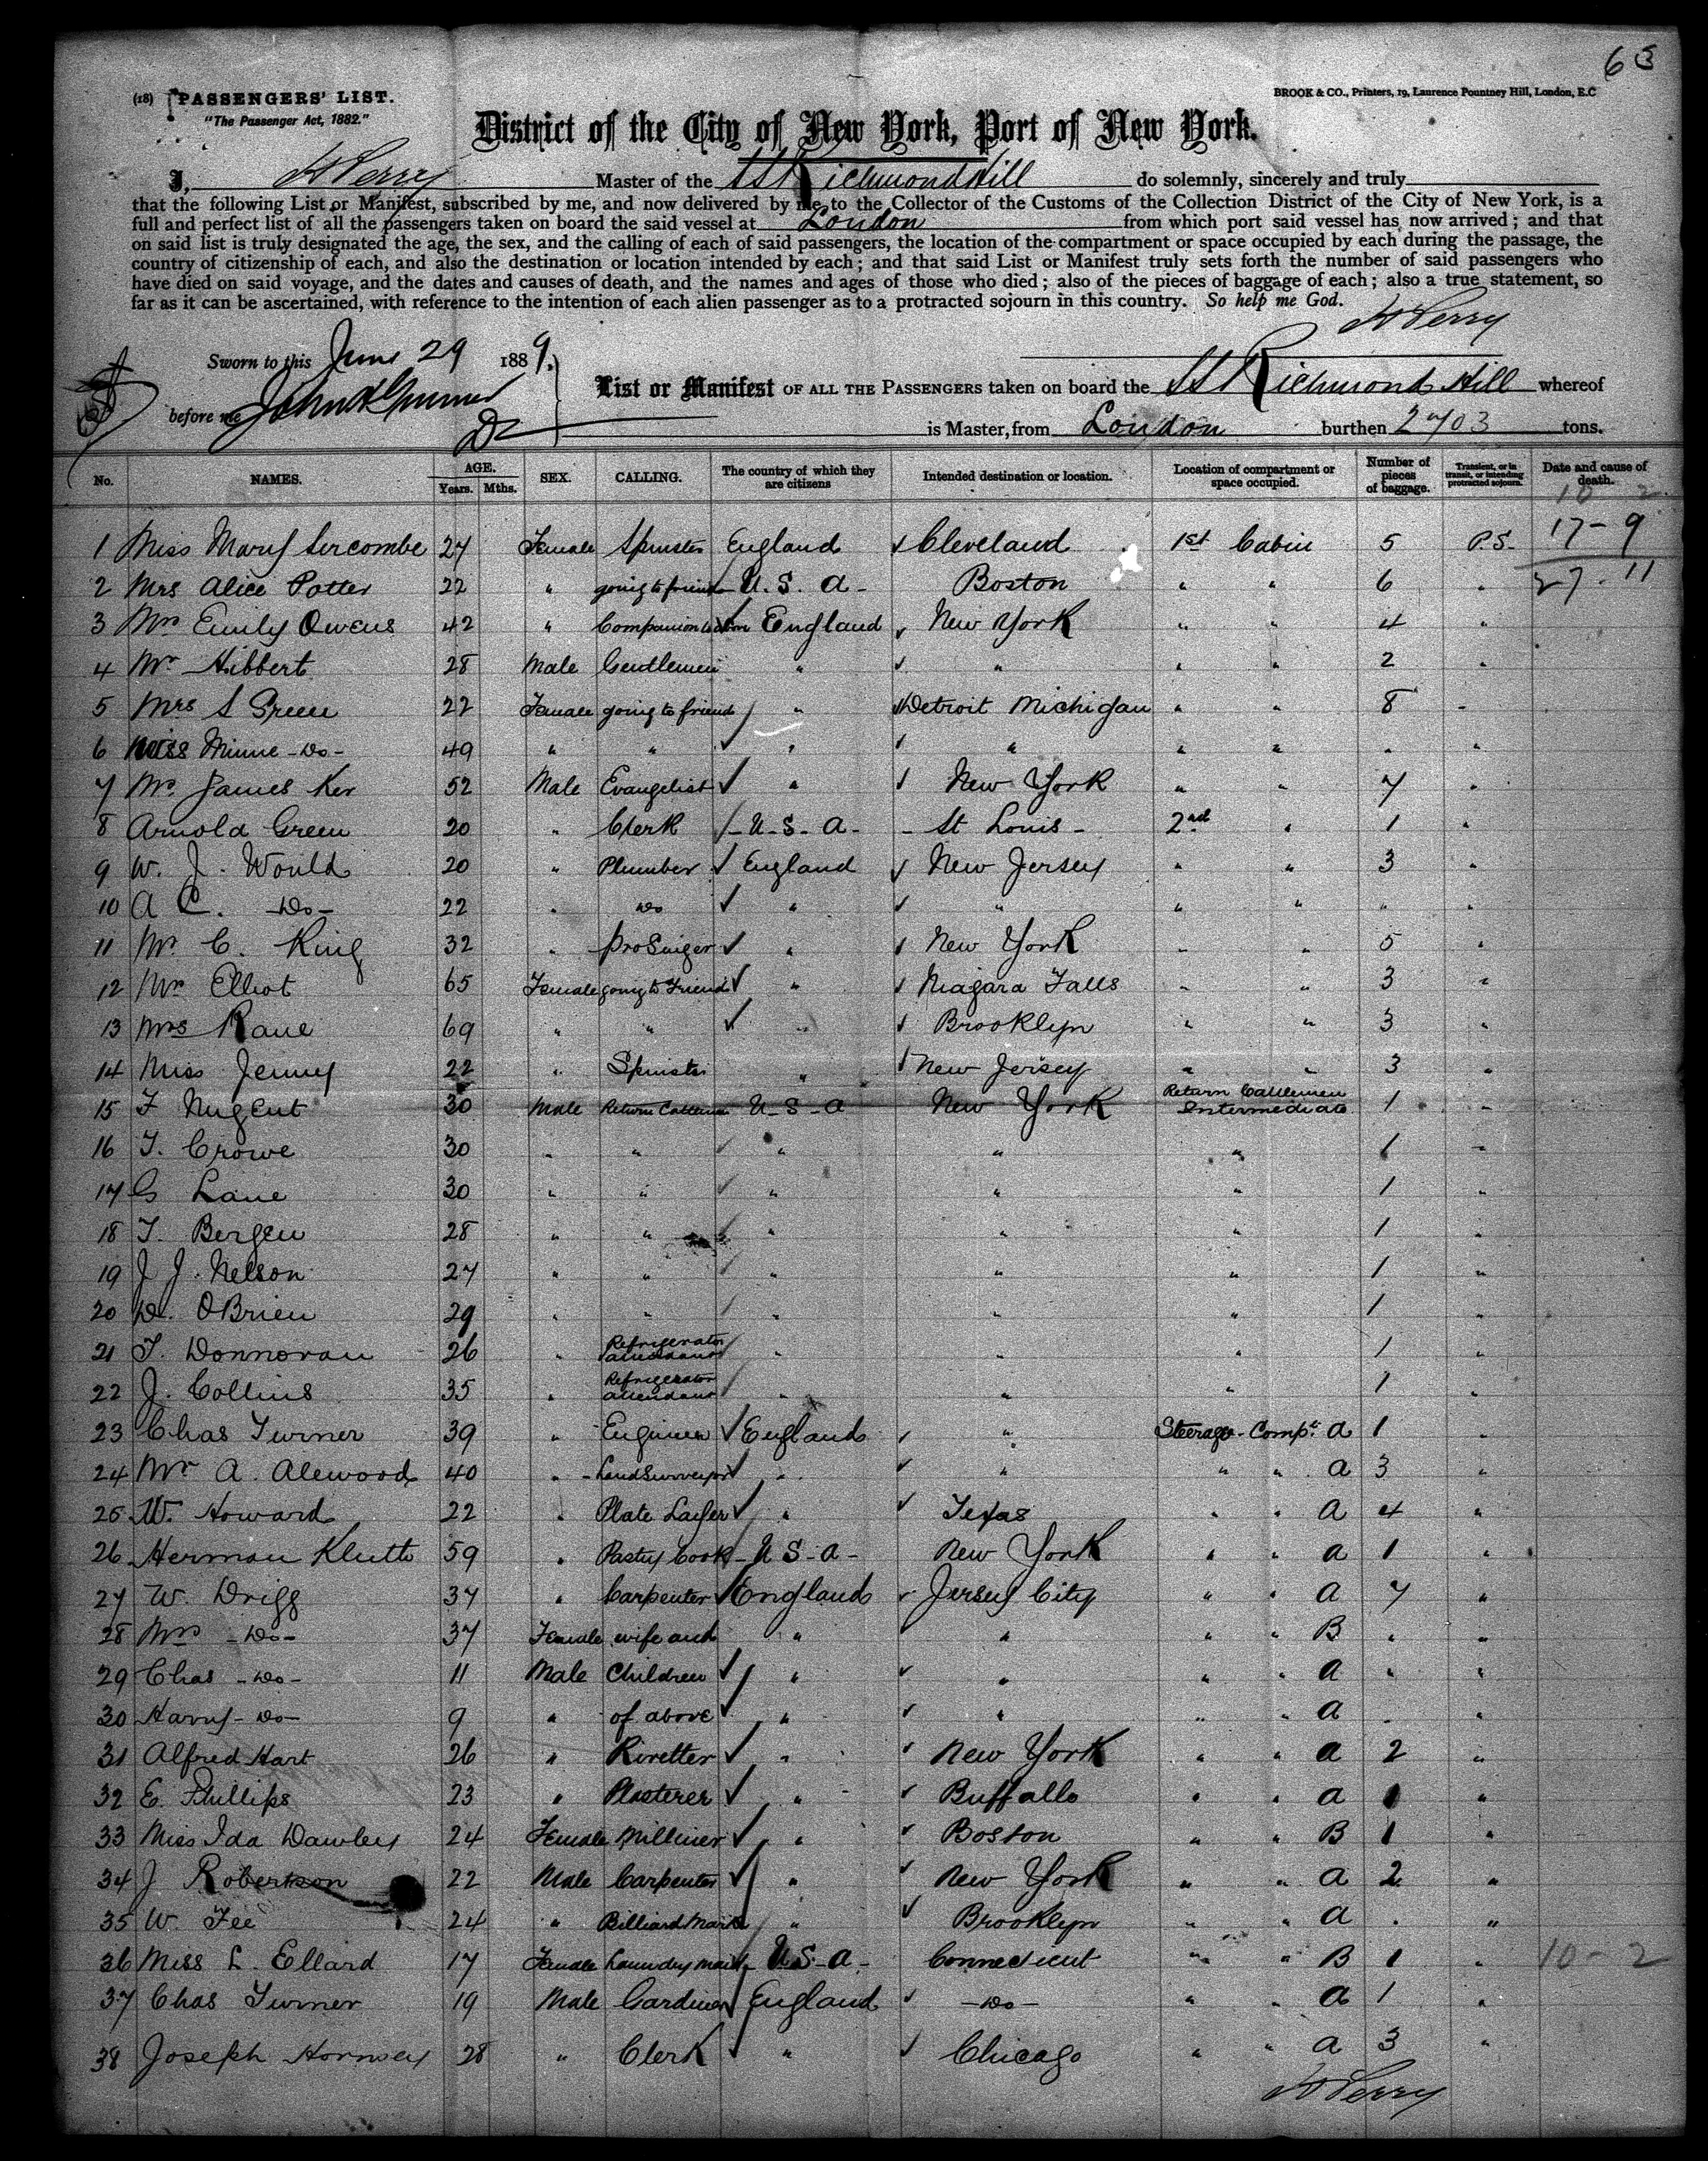 63
(18) PASSENGERS' LIST.
BROOK & CO., Printers, 19, Laurence Pountney Hill, London, E.C
"The Passenger Act, 1882."
District of the City of New York, Port of New York.
I, H Perry Master of the SS Richmond Hill do solemnly, sincerely and truly
that the following List or Manifest, subscribed by me, and now delivered by me to the Collector of the Customs of the Collection District of the City of New York, is a
full and perfect list of all the passengers taken on board the said vessel at London from which port said vessel has now arrived; and that
on said list is truly designated the age, the sex, and the calling of each of said passengers, the location of the compartment or space occupied by each during the passage, the
country of citizenship of each, and also the destination or location intended by each; and that said List or Manifest truly sets forth the number of said passengers who
have died on said voyage, and the dates and causes of death, and the names and ages of those who died; also of the pieces of baggage of each; also a true statement, so
far as it can be ascertained, with reference to the intention of each alien passenger as to a protracted sojourn in this country. So help me God.
H Perry
Sworn to this June 29 1889.
before me
List or Manifest OF ALL THE PASSENGERS taken on board the SS Richmond Hill whereof
is Master, from London burthen 2703 tons.
No. NAMES. AGE. Years. Mths. SEX. CALLING. The country of which they are citizens Intended destination or location. Location of compartment or space occupied. Number of pieces of baggage. Transient, or in transit, or intending protracted sojourn. Date and cause of death.
10 2
1 Miss Mary Sercombe 24 Female Spinster England Cleveland 1st Cabin 5 P.S. 17-9
2 Mrs Alice Potter 22 " going to friends U.S.A- Boston " " 6 " 27-11
3 Mrs Emily Owens 42 " Companion to England New York " " 4 "
4 Mr Hibbert 28 Male Gentlemen " " " " 2 "
5 Mrs S Green 22 Female going to friends " Detroit Michigan " " 8 "
6 Miss Minne -Do- 49 " " " " " " " "
7 Mr James Ker 52 Male Evangelist " New York " " 7 "
8 Arnold Green 20 " Clerk U-S-A- St Louis- 2nd " 1 "
9 W. J. Would 20 " Plumber England New Jersey " " 3 "
10 A C. -Do- 22 " Do " " " " " "
11 Mr C. King 32 " Pro Singer " New York " " 5 "
12 Mrs Elliot 65 Female going to Friends " Niagara Falls " " 3 "
13 Mrs Rane 69 " " " Brooklyn " " 3 "
14 Miss Jenny 22 " Spinster " New Jersey " " 3 "
15 F Nugent 30 Male Return Cattleman U-S-A New York Return Cattlemen Intermediate 1 "
16 T. Crowe 30 " " " " " 1 "
17 G Lane 30 " " " " " 1 "
18 T. Bergen 28 " " " " " 1 "
19 J J. Nelson 27 " " " " " 1 "
20 D. OBrien 29 " " " " " 1 "
21 T. Donnovan 26 " Refrigerator attendant " " " 1 "
22 J. Collins 35 " Refrigerator attendant " " " 1 "
23 Chas Turner 39 " Engineer England " Steerage-Compt A 1 "
24 Mr A. Alewood 40 " Land Surveyor " " " " A 3 "
25 W. Howard 22 " Plate Layer " Texas " " A 4 "
26 Herman Klutt 59 " Pastry Cook U-S-A- New York " " A 1 "
27 W. Drigg 37 " Carpenter England Jersey City " " A 7 "
28 Mrs -Do- 37 Female wife and " " " " B " "
29 Chas -Do- 11 Male Children " " " " A " "
30 Harry -Do- 9 " of above " " " " A " "
31 Alfred Hart 26 " Rivetter " New York " " A 2 "
32 E. Phillips 23 " Plasterer " Buffallo " " A 1 "
33 Miss Ida Dawley 24 Female Milliner " Boston " " B 1 "
34 J Robertson 22 Male Carpenter " New York " " A 2 "
35 W. Fee 24 " Billiard " Brooklyn " " A " "
36 Miss L. Ellard 17 Female Laundry Maid U.S-A- Connecticut " " B 1 " 10-2
37 Chas Turner 19 Male Gardiner England -Do- " " A 1 "
38 Joseph Hornsey 28 " Clerk " Chicago " " A 3 "
H Perry